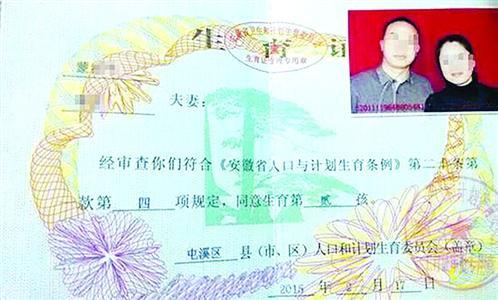 生 育 证
生育证管理专用章
蒙
夫妻:
经审查你们符合《安徽省人口与计划生育条例》第二十条第
款第 四 项规定,同意生育第 贰 孩。
屯溪区 县(市、区)人口和计划生育委员会(盖章)
2015 年 2 月 17 日